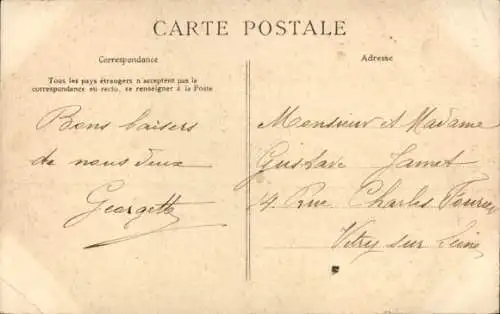 CARTE POSTALE
Correspondance
Tous les pays étrangers n'acceptent pas la
correspondance au recto, se renseigner à la Poste
Bons baisers
de nous deux
Georgette
Adresse
Monsieur et Madame
Gustave Jamet
4. Rue Charles Fourier
Vitry sur Seine